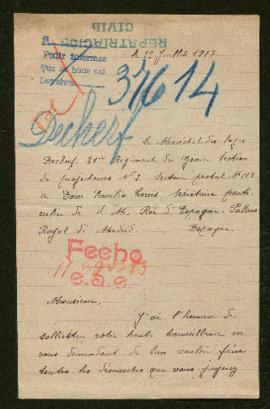 REPATRIACION
CIVIL
Pedir informes
que se hace así
le 25 Juillet 1917.
37614
Decherf
Le Maréchal des Logis
Decherf 21e Régiment du Génie Section
de projecteurs No 3 Secteur postal No 188
à Dom Emilio Torrès, Secrétaire parti-
culier de S. M. Roi d'Espagne. Palais
Royal de Madrid. Espagne.
Fecho
e.s.e.
Monsieur,
J'ai l'honneur de
solliciter votre haute bienveillance en
vous demandant de bien vouloir faire
toutes les démarches que vous jugerez